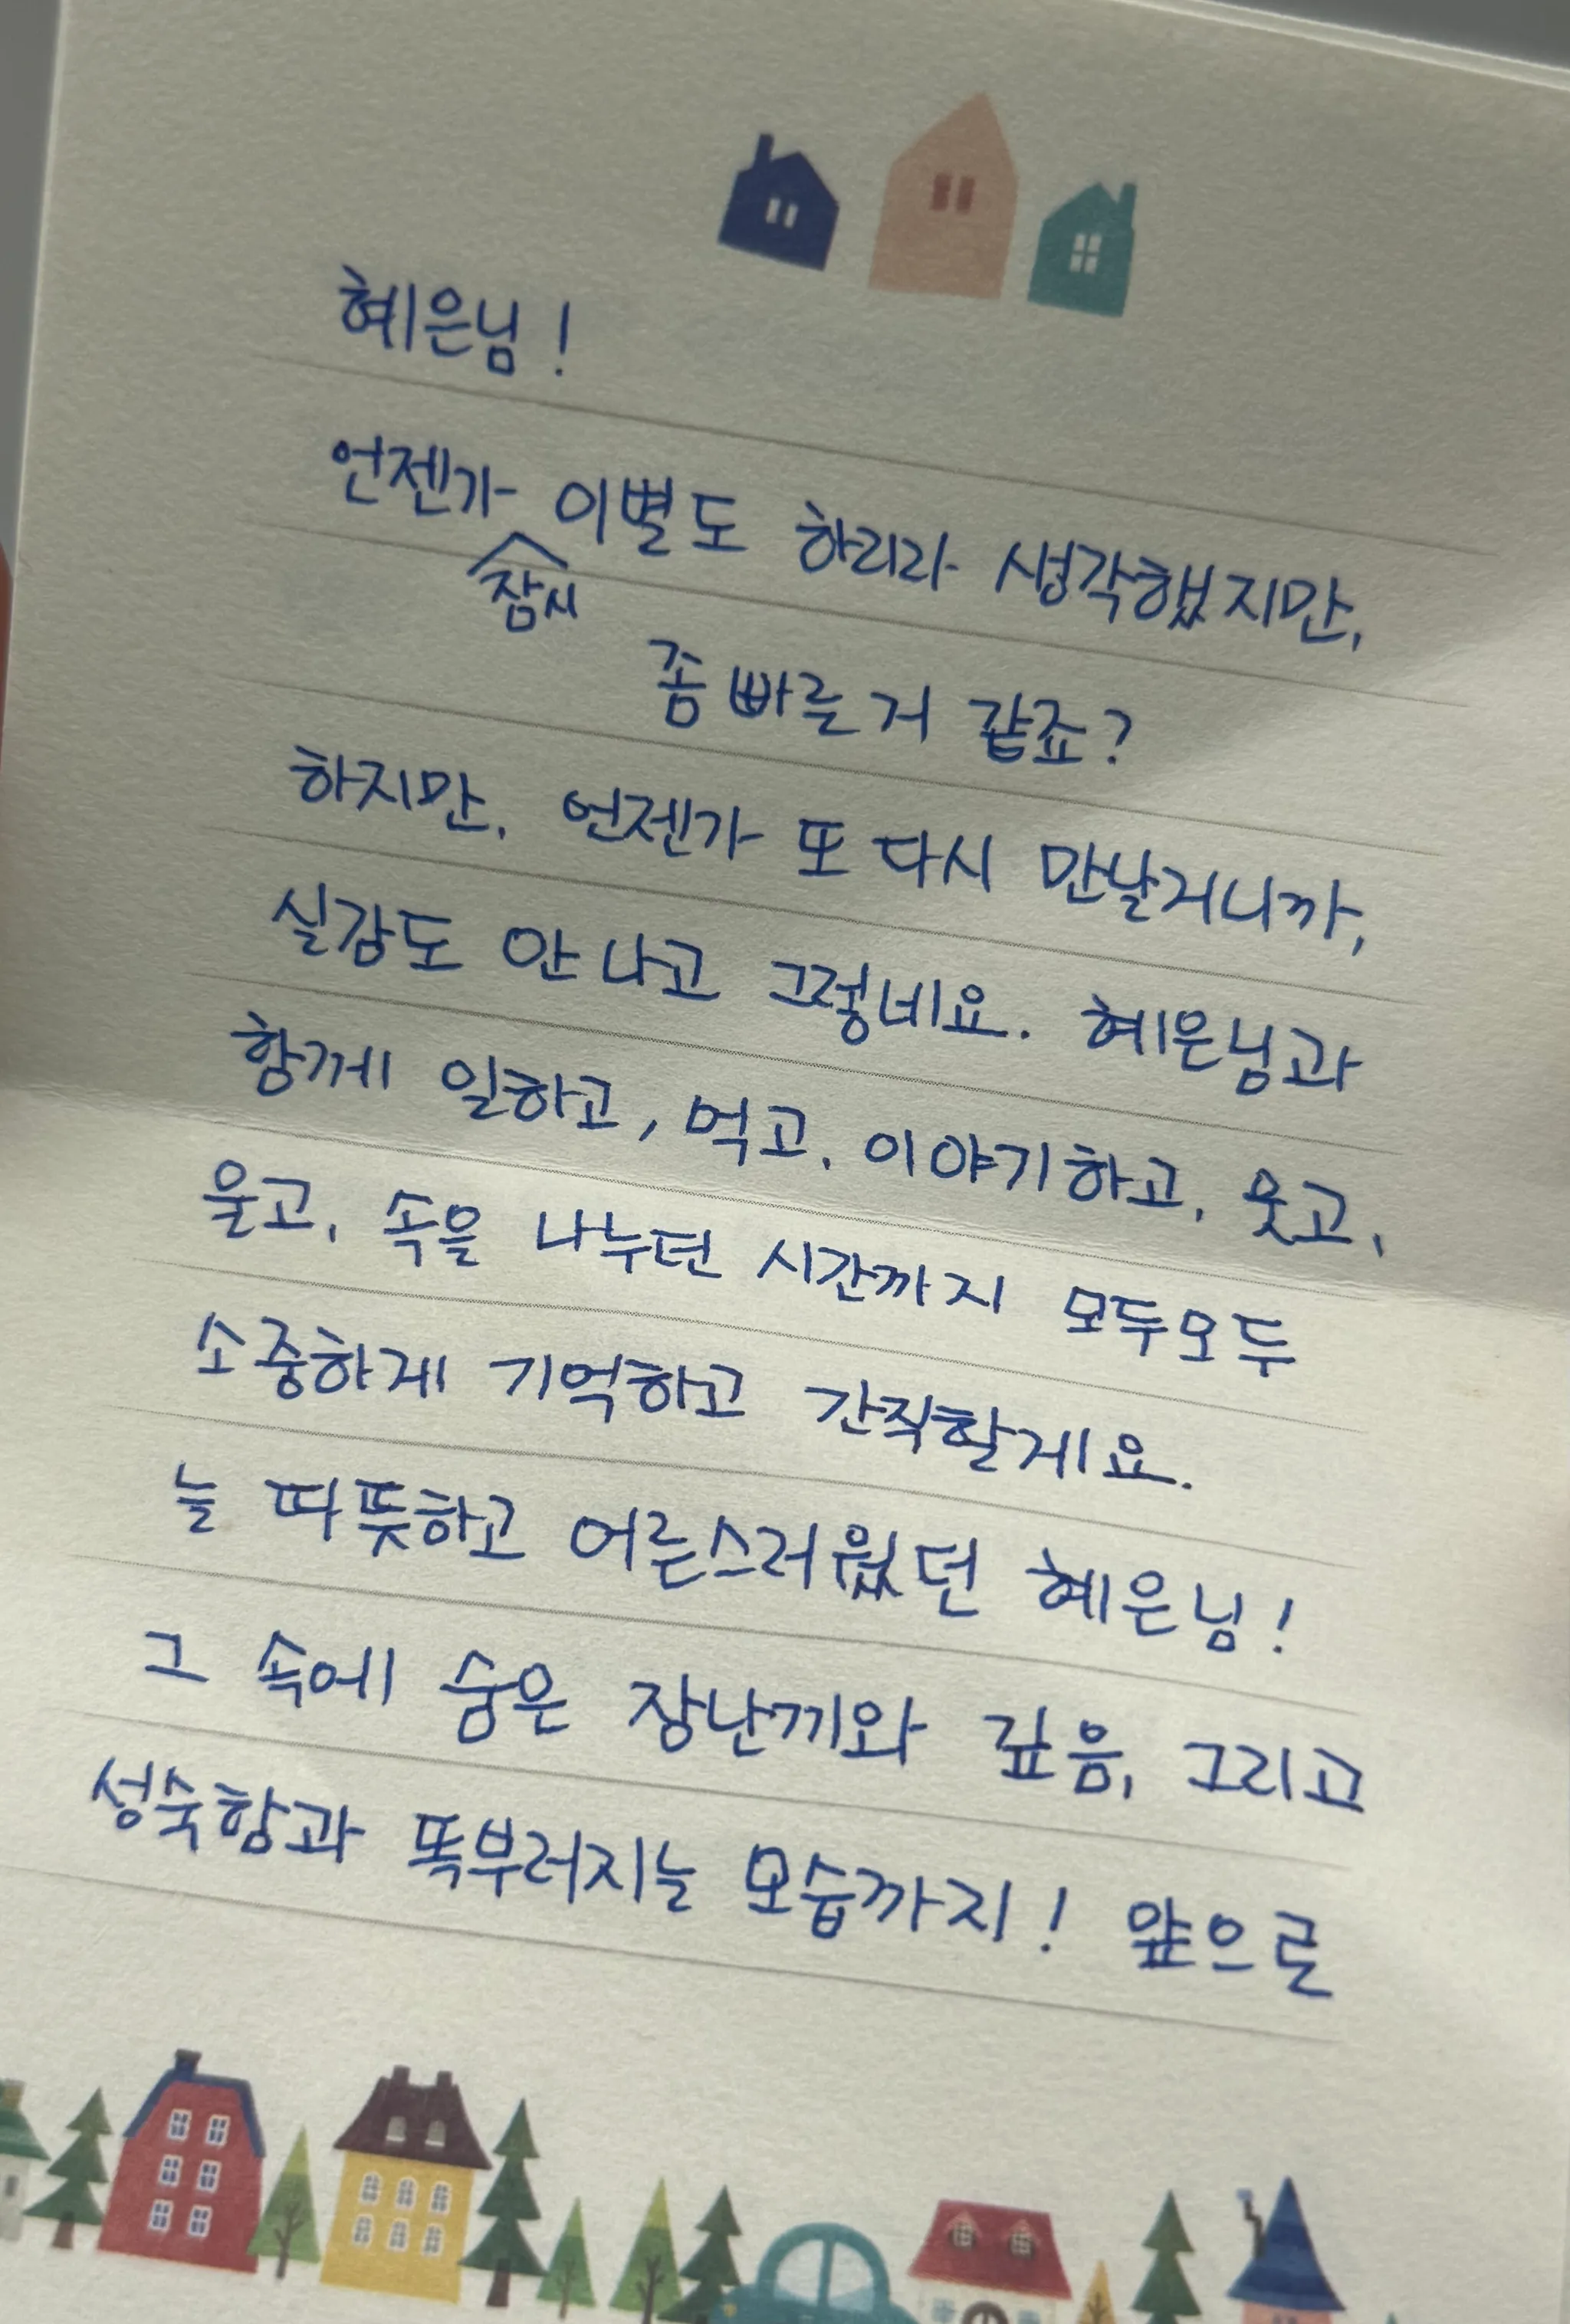 혜은님!
언젠가 잠시 이별도 하리라 생각했지만,
좀 빠른거 같죠?
하지만, 언젠가 또 다시 만날거니까,
실감도 안 나고 그렇네요. 혜은님과
함께 일하고, 먹고, 이야기하고, 웃고,
울고, 속을 나누던 시간까지 모두모두
소중하게 기억하고 간직할게요.
늘 따뜻하고 어른스러웠던 혜은님!
그 속에 숨은 장난끼와 깊음, 그리고
성숙함과 똑부러지는 모습까지! 앞으로